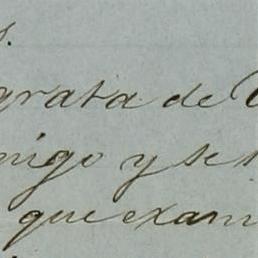 s.
grata de
migo y se
que exam